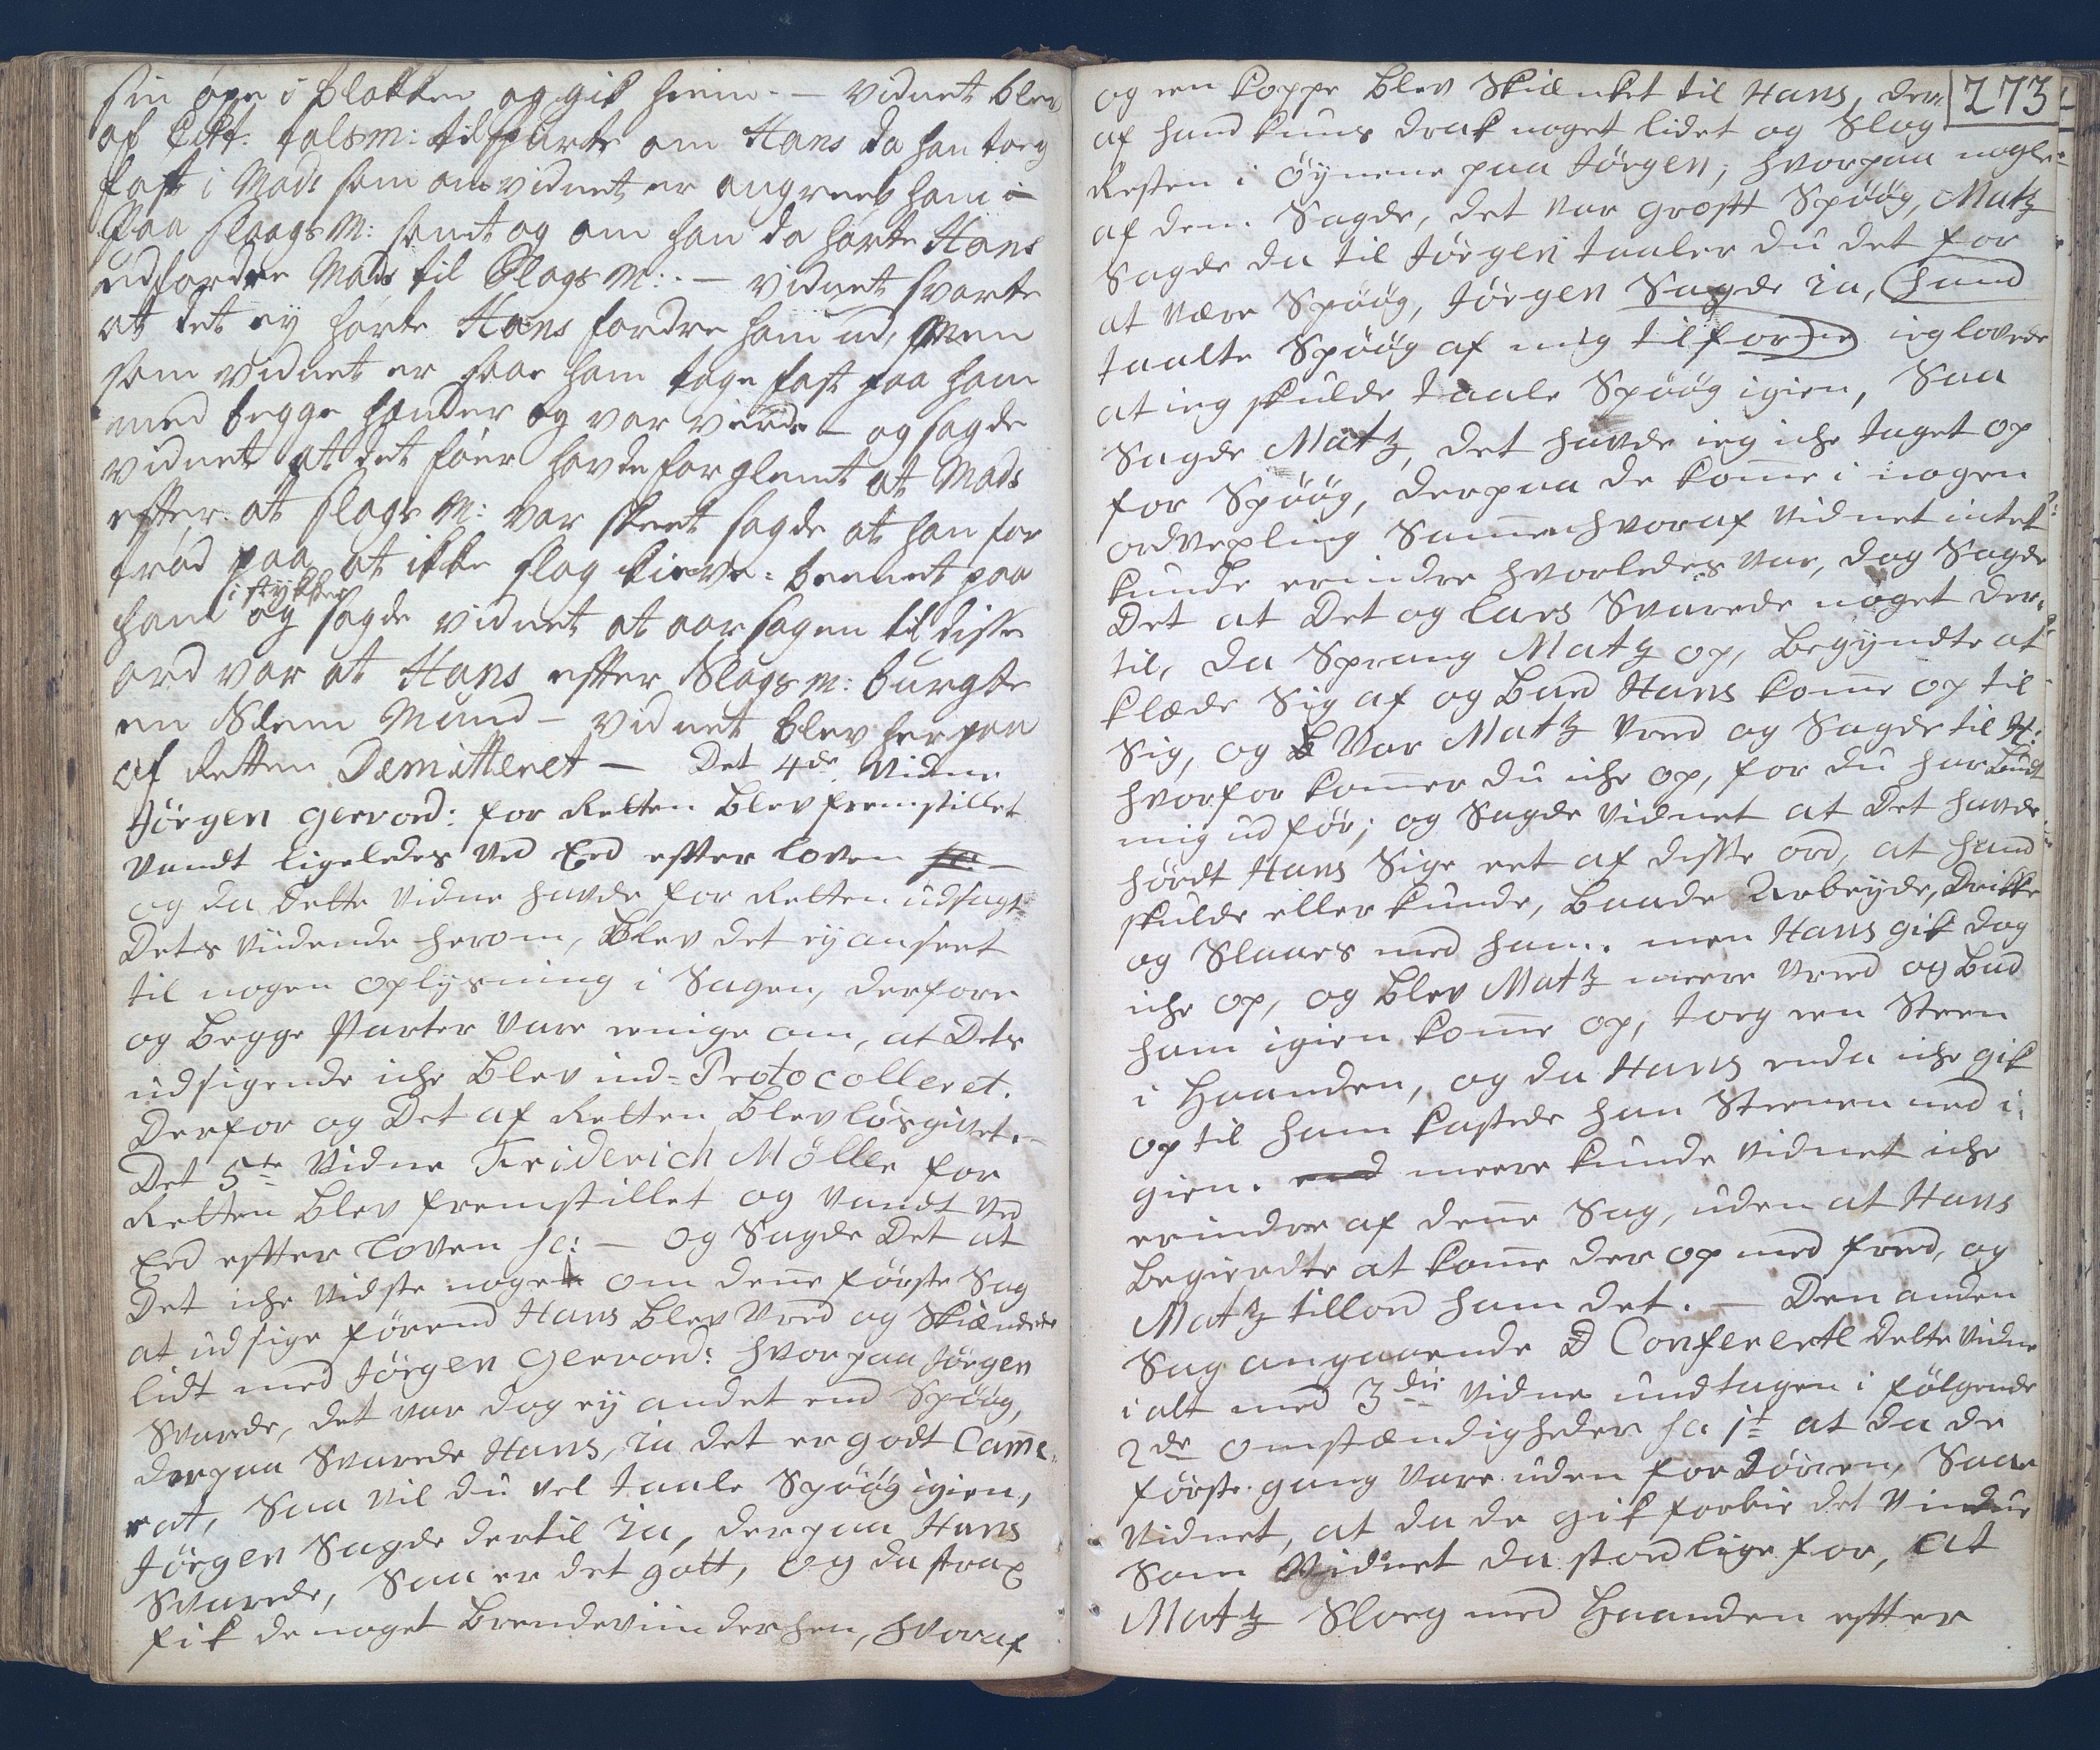 sin øxe i blokken og gik hiem. — vidnet blev
af Citt: talsm: tilspurte om Hans da han toeg
fast i Mads som om vidnet er angreeb ham i
paa slaags M: sendt og om han da hørte Hans
udfordre Mads til Slags M: — vidnet svarte
at det ey hørte Hans fordre ham ud, Men
som vidnet er saae ham tage fast paa ham
med begge hender og var vred — og sagde
vidnet at det føer havde forglemt at Mads
efter at slags M: var skeet sagde at han for
trød paa at ikke slog kieve-beenet paa
ham i stykker og sagde vidnet at aarsagen til disse
ord var at Hans efter Slags M: burgte
en Slem Mund — vidnet blev herpaa
af Retten Demitteret — Det 4de Vidne
Jørgen Gervord: for Retten blev fremstillet
Vandt ligeledes ved Eed efter loven
og da dette Vidne havde for Retten udsagt
Dets Viidende herom, blev det ey anseet
til nogen oplysning i Sagen, derfore
og begge Parter vare enige om, at Dets
udsigende iche blev ind-Protocolleret.
Derfor og Det af Retten blev løsgivet. —
Det 5te Vidne Friderich Mölle for
Retten blev fremstillet og Vandt ved
Eed efter loven sc: — og Sagde Det at
Det iche vidste noget om denne første Sag
at udsige førend Hans blev Vred og Skiændede
lidt med Jørgen Gervord: hvorpaa Jørgen
Svarede, det var dog ey andet end Spøøg,
derpaa Svarede Hans, ia det er godt Came-
rat, Saa vil du vel taale Spøøg igien,
Jørgen Sagde dertil ia, derpaa Hans
Svarede, Saa er det gott, og da strax
fik de noget Brendeviin derhen, hvoraf
273
og een koppe blev Skiænket til Hans, der-
af hand kuns drak noget lidet og Slog
Resten i Øynene paa Jørgen; hvorpaa nogle
af dem Sagde, det var grovt Spøøg, Matz
Sagde da til Jørgen taaler du det for
at være Spøøg, Jørgen Sagde ia, hand
taalte Spøøg af mig tilforne ieg lovede
at ieg skulde taale Spøøg igien, Saa
Sagde Matz, det havde ieg iche taget op
for Spøøg, derpaa de kome i nogen
ordvexling Samen hvoraf Vidnet intet
kunde erindre hvorledes var, dog Sagde
Det at Det og Lars Svarede noget der-
til, da Sprang Matz op, begyndte at
klæde Sig af og bad Hans kome op til
Sig, og var Matz Vred og Sagde til H:
hvorfor komer du iche op, for du har budt
mig ud før; og Sagde Vidnet at Det havde
hørdt Hans Sige eet af disse ord, at hand
skulde eller kunde, baade Arbeyde, Drikke
og Slaaes med ham. men Hans gik dog
iche op, og blev Matz meere vred og bad
ham igien kome op, toeg een Steen
i Haanden, og da Hans enda iche gik
op til ham kastede han Steenen ned i-
gien. meere kunde Vidnet iche
erindre af dene Sag, uden at Hans
begierdte at kome der op med fred, og
Matz tillod ham det. — Den anden
Sag angaaende Confereerte dette Vidne
i alt med 3die Vidne undtagen i følgende
2de omstændigheder sc: 1t at da de
første gang vare uden for dørren, Saae
Vidnet, at da de gik forbie det Vindue
Som Vidnet da stod lige for, at
Matz Sloeg med Haanden efter